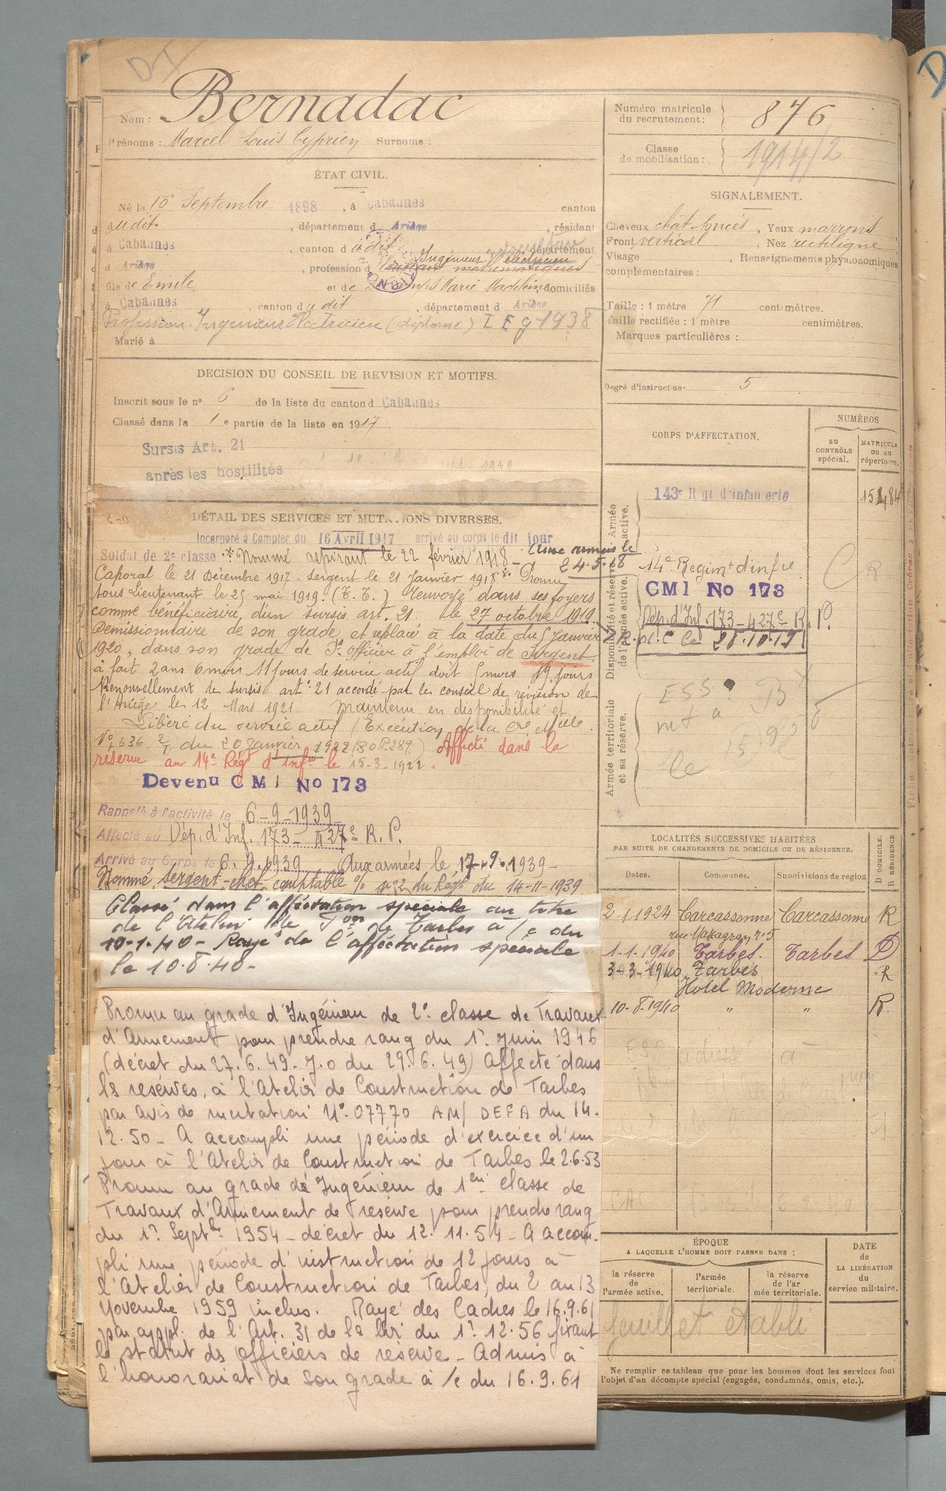 D I
Nom : Bernadac
Prénoms : Marcel Louis Cyprien Surnoms :
ÉTAT CIVIL.
Né le 16 Septembre 1898, à Cabannes canton
d udit, département d Ariège, résidant
à Cabannes, canton d udit, département
d Ariège, profession d Ingénieur électricien
fils de Emile et de Marie Madeleine domiciliés
à Cabannes canton d udit, département d Ariège
Profession : Ingénieur Electricien (diplomé) I E g 1938
Marié à
DÉCISION DU CONSEIL DE RÉVISION ET MOTIFS.
Inscrit sous le n° 6 de la liste du canton d Cabannes
Classé dans la 1e partie de la liste en 1917.
Sursis Art. 21
après les hostilités
DÉTAIL DES SERVICES ET MUTATIONS DIVERSES.
Incorporé à Compter du 16 Avril 1917 arrivé au corps le dit jour
Soldat de 2e classe. Nommé aspirant le 22 février 1918 - Aux armées le 24.5.18
Caporal le 21 Décembre 1917. Sergent le 21 Janvier 1918. Promu
sous Lieutenant le 25 mai 1919. (E. E.) renvoyé dans ses foyers
comme bénéficiaire d'un sursis art. 21. le 27 octobre 1919.
Démissionnaire de son grade, et replacé à la date du Janvier
1920, dans son grade de Ss officier à l'emploi de Sergent.
à fait 2 ans 6 mois 11 jours de service actif doit 5 mois 19 jours
Renouvellement de sursis art. 21 accordé par le conseil de révision de
l'Ariège le 12 Mars 1921. maintenu en disponibilité et
Libéré du service actif (Exécution de la Cre Mlle
N° 636. 2/1 du 20 Janvier 1922 B.O.P. 289) Affecté dans la
réserve au 14e Régt d'Infie le 15-3-1922.
Devenu C M I No 173
Rappelé à l'activité le 6-9-1939
Affecté au Dép. d'Inf. 173 - 427e R. P.
Arrivé au Corps le 6.9.1939 Aux armées le 17.9.1939 -
Nommé Sergent-chef comptable o/o n° 2 du Régt du 14-11-1939
Classé dans l'affectation spéciale au titre
de l'Atelier de Ton de Tarbes à /c du
10-1-40 - Rayé de l'affectation spéciale
le 10.8.40 -
Promu au grade d'Ingénieur de 2e classe de Travaux
d'Armement pour prendre rang du 1er juin 1946
(décret du 27.6.49 - J.O du 29.6.49) Affecté dans
les réserves, à l'Atelier de Construction de Tarbes
par avis de mutation N° 07770 AM/ DEFA du 14.
12.50 - A accompli une période d'exercice d'un
jour à l'Atelier de Construction de Tarbes le 2.6.53
Promu au grade de Ingénieur de 1ere classe de
Travaux d'Armement de réserve pour prendre rang
du 1er Septbre 1954 - décret du 12.11.54 - A accom-
pli une période d'instruction de 12 jours à
l'Atelier de Construction de Tarbes, du 2 au 13
Novembre 1959 inclus. Rayé des Cadres le 16.9.61
par appl. de l'Art. 31 de la loi du 1er 12.56 fixant
le statut des officiers de réserve - Admis à
l'honorariat de son grade à /c du 16.9.61
Numéro matricule du recrutement : 876
Classe de mobilisation : 1914/2
SIGNALEMENT.
Cheveux chât. foncés, Yeux marrons
Front vertical, Nez rectiligne
Visage , Renseignements physionomiques
complémentaires :
Taille : 1 mètre 71 centimètres.
Taille rectifiée : 1 mètre centimètres.
Marques particulières :
Degré d'instruction : 5
CORPS D'AFFECTATION.
NUMÉROS
au CONTRÔLE spécial.
MATRICULE ou au répertoire.
Armée active.
143e Rgt d'infanterie
15484
Disponibilité et réserve de l'armée active.
14e Régimt d'infie
C R
CMI No 173
Dép. d'Inf. 173 - 427e R. P.
Armée territoriale et sa réserve.
LOCALITÉS SUCCESSIVES HABITÉES
PAR SUITE DE CHANGEMENTS DE DOMICILE OU DE RÉSIDENCE.
D DOMICILE. R RÉSIDENCE
Dates. Communes. Subdivisions de région
2-1-1924 Carcassonne Carcassonne R
rue Mazagran n° 5
1-1-1940 Tarbes. Tarbes D
3-3-1940 Tarbes R
Hotel Moderne
10-8-1940 " " R
ÉPOQUE
A LAQUELLE L'HOMME DOIT PASSER DANS :
la réserve de l'armée active.
l'armée territoriale.
la réserve de l'armée territoriale.
DATE de LA LIBÉRATION du service militaire.
feuillet établi
Ne remplir ce tableau que pour les hommes dont les services font
l'objet d'un décompte spécial (engagés, condamnés, omis, etc.).